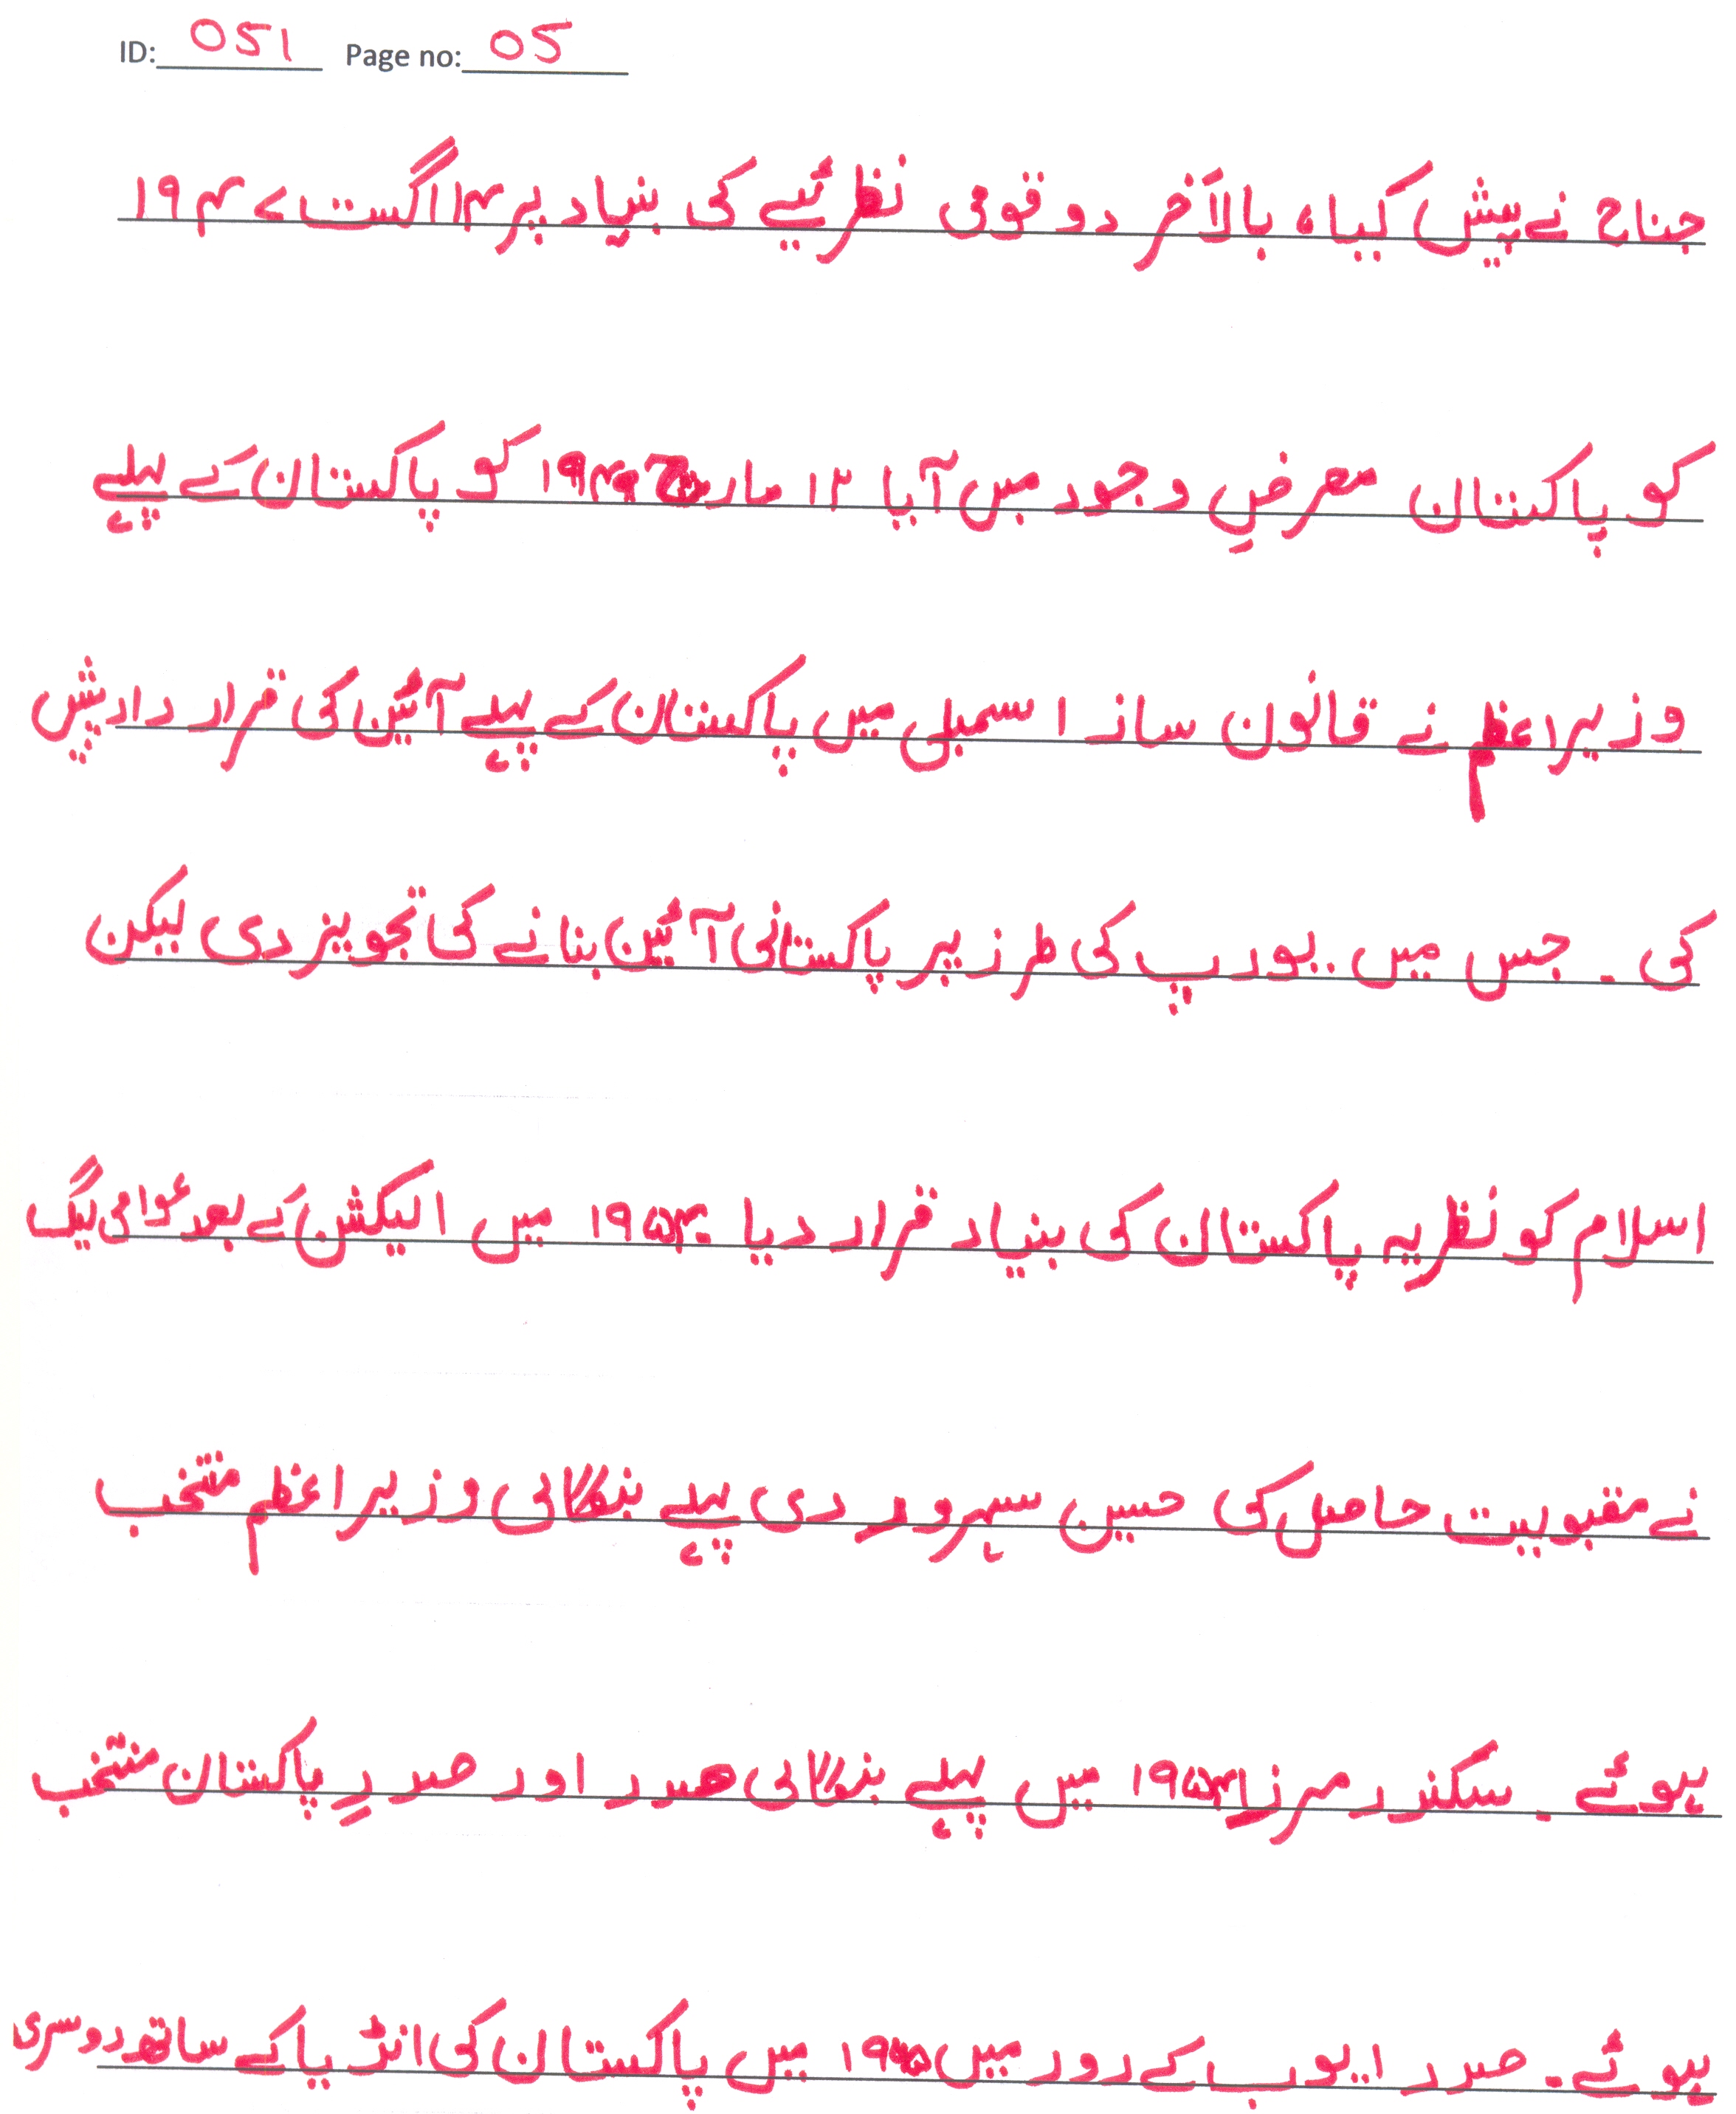 ID: 051 Page no: 05
جناح نے پیش کیا، بالآخر دو قومی نظرئیے کی بنیاد پر ۱۴ اگست ۱۹۴۷
کو پاکستان معرضِ وجود میں آیا ۱۲ مارچ ۱۹۴۹ کو پاکستان کے پہلے
وزیراعظم نے قانون ساز اسمبلی میں پاکستان کے پہلے آئین کی قرارداد پیش
کی ۔ جس میں یورپ کی طرز پر پاکستانی آئین بنانے کی تجویز دی لیکن
اسلام کو نظریہ پاکستان کی بنیاد قرار دیا ۔ ۱۹۵۴ میں الیکشن کے بعد عوامی لیگ
نے مقبولیت حاصل کی حسین سہروردی پہلے بنگالی وزیراعظم منتخب
ہوئے ۔ سکندر مرزا ۱۹۵۴ میں پہلے بنگالی صدر اور صدرِ پاکستان منتخب
ہوئے ۔ صدر ایوب کے دور میں ۱۹۶۵ میں پاکستان کی انڈیا کے ساتھ دوسری